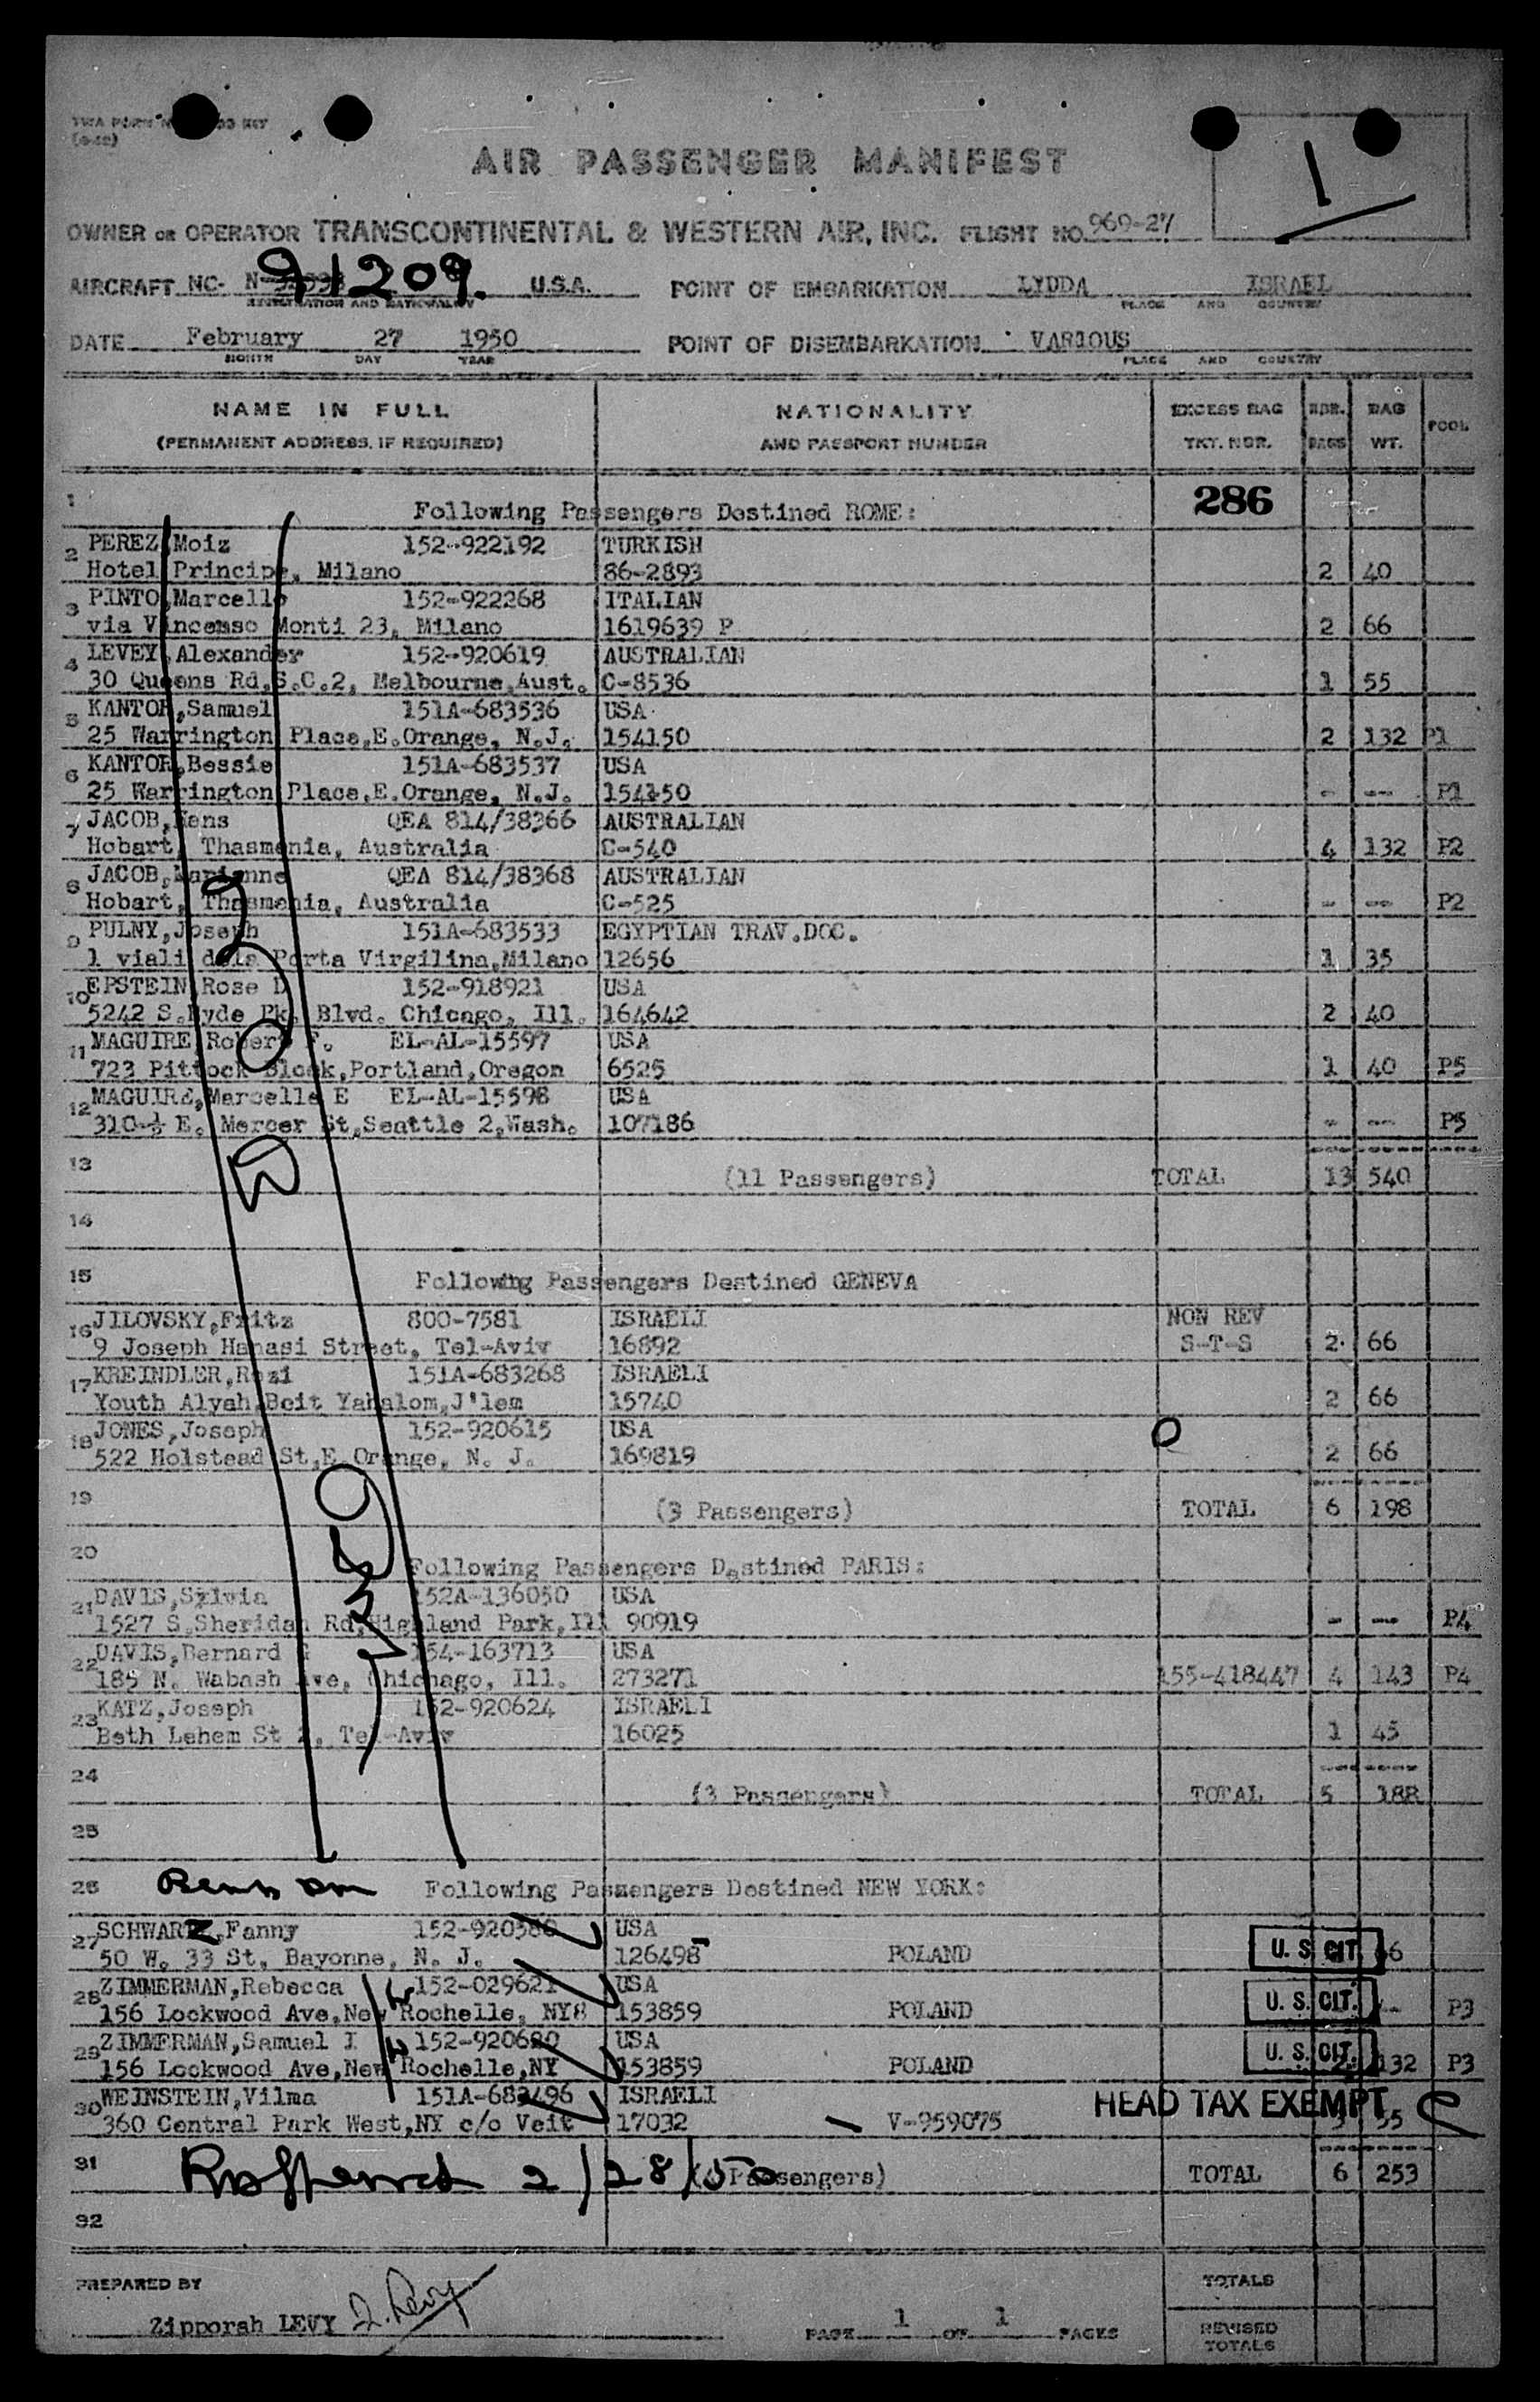 AIR PASSENGER MANIFEST
1
OWNER OR OPERATOR TRANSCONTINENTAL & WESTERN AIR, INC. FLIGHT NO. 969-27
AIRCRAFT NC- 91209. U.S.A. POINT OF EMBARKATION LYDDA ISRAEL
REGISTRATION AND NATIONALITY PLACE AND COUNTRY
DATE February 27 1950 POINT OF DISEMBARKATION VARIOUS
MONTH DAY YEAR PLACE AND COUNTRY
NAME IN FULL NATIONALITY EXCESS BAG NBR. BAG POOL
(PERMANENT ADDRESS, IF REQUIRED) AND PASSPORT NUMBER TKT. NBR. BAGS WT.
1 Following Passengers Destined ROME: 286
2 PEREZ,Moiz 152-922192 TURKISH
Hotel Principe, Milano 86-2893 2 40
3 PINTO,Marcello 152-922268 ITALIAN
via Vincenso Monti 23, Milano 1619639 P 2 66
4 LEVEY,Alexander 152-920619 AUSTRALIAN
30 Queens Rd,S.C.2, Melbourne,Aust. C-8536 1 55
5 KANTOR,Samuel 151A-683536 USA
25 Warrington Place,E.Orange, N.J. 154150 2 132 P1
6 KANTOR,Bessie 151A-683537 USA
25 Warrington Place,E.Orange, N.J. 154150 - -- P1
7 JACOB,Hans QEA 814/38366 AUSTRALIAN
Hobart, Thasmania, Australia C-540 4 132 P2
8 JACOB,Marianne QEA 814/38368 AUSTRALIAN
Hobart, Thasmania, Australia C-525 - -- P2
9 PULNY,Joseph 151A-683533 EGYPTIAN TRAV.DOC.
1 viali dela Porta Virgilina,Milano 12656 1 35
10 EPSTEIN,Rose D 152-918921 USA
5242 S.Hyde Pk. Blvd. Chicago, Ill. 164642 2 40
11 MAGUIRE,Robert F. EL-AL-15597 USA
723 Pittock Block,Portland,Oregon 6525 1 40 P5
12 MAGUIRE,Marcelle E EL-AL-15598 USA
310-½ E. Mercer St,Seattle 2,Wash. 107186 - -- P5
13 (11 Passengers) TOTAL 13 540
14
15 Following Passengers Destined GENEVA
16 JILOVSKY,Fritz 800-7581 ISRAELI NON REV
9 Joseph Hanasi Street, Tel-Aviv 16892 S-T-S 2 66
17 KREINDLER,Rozi 151A-683268 ISRAELI
Youth Alyah,Beit Yahalom,J'lem 15740 2 66
18 JONES,Joseph 152-920615 USA
522 Holstead St,E.Orange, N. J. 169819 2 66
19 (3 Passengers) TOTAL 6 198
20 Following Passengers Destined PARIS:
21 DAVIS,Sylvia 152A-136050 USA
1527 S.Sheridan Rd,Highland Park,Ill 90919 - -- P4
22 DAVIS,Bernard G 154-163713 USA
185 N. Wabash Ave, Chicago, Ill. 273271 155-418447 4 143 P4
23 KATZ,Joseph 152-920624 ISRAELI
Beth Lehem St 2, Tel-Aviv 16025 1 45
24 (3 Passengers) TOTAL 5 188
25
26 Following Passengers Destined NEW YORK:
27 SCHWARTZ,Fanny 152-920580 USA
50 W. 33 St, Bayonne, N. J. 126498 POLAND U. S. CIT. 66
28 ZIMMERMAN,Rebecca 152-029621 USA
156 Lockwood Ave,New Rochelle, NY8 153859 POLAND U. S. CIT. -- P3
29 ZIMMERMAN,Samuel I 152-920620 USA
156 Lockwood Ave,New Rochelle,NY 153859 POLAND U. S. CIT. 2 132 P3
30 WEINSTEIN,Vilma 151A-683496 ISRAELI HEAD TAX EXEMPT
360 Central Park West,NY c/o Veit 17032 V-959075 55
31 2/28/50 Passengers) TOTAL 6 253
32
PREPARED BY TOTALS
Zipporah LEVY Z. Levy PAGE 1 OF 1 PAGES REVISED
TOTALS